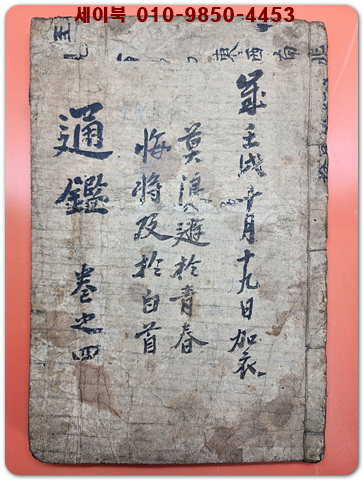 세이북 010-9850-4453
北南西東
歲壬戌十月十九日加衣
莫浪遊於青春
悔將及於白首
通鑑 卷之四